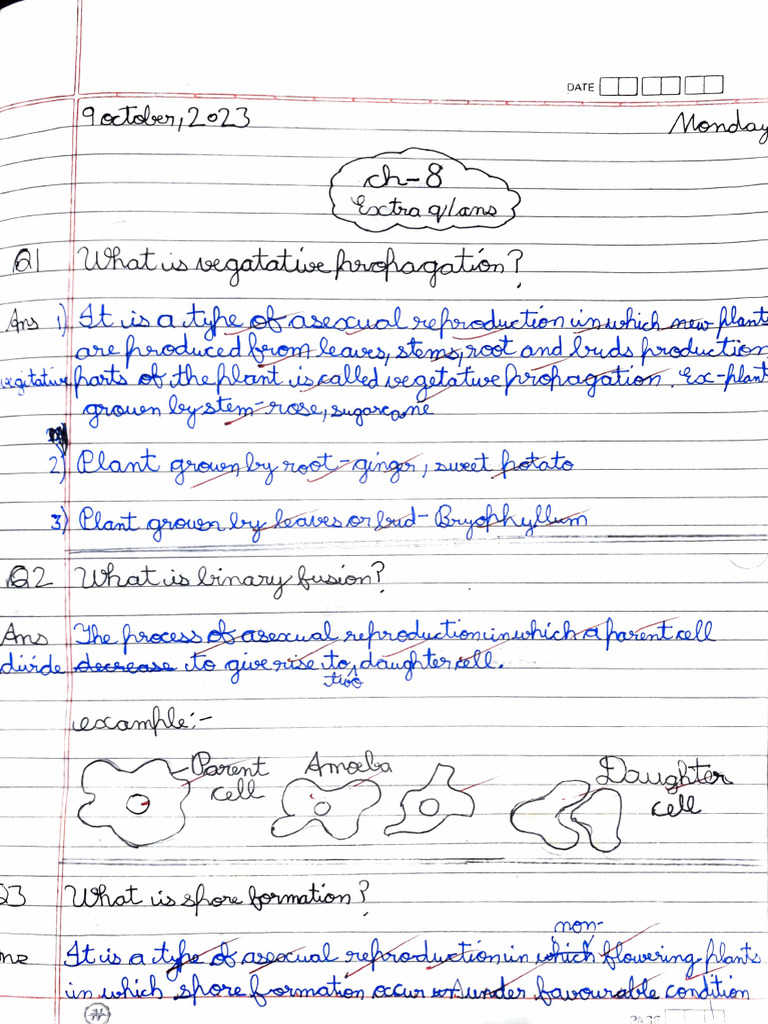 DATE
9 october, 2023 Monday
ch-8
Extra q/ans
Q1 What is vegatative propagation?
Ans 1) It is a type of asexual reproduction in which new plants
are produced from leaves, stems, root and buds production
vegitative parts of the plant is called vegetative propagation. Ex-plant
grown by stem-rose, sugarcane
2) Plant grown by root-ginger, sweet potato
3) Plant grown by leaves or bud-Bryophyllum
Q2 What is binary fusion?
Ans The process of asexual reproduction in which a parent cell
divide decrease to give rise to two daughter cell.
example:-
Parent cell Amoeba Daughter cell
Q3 What is spore formation?
Ans It is a type of asexual reproduction in which non-flowering plants
in which spore formation occur under favourable condition
PAGE